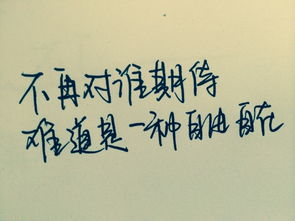 不再对谁期待
难道是一种自由自在